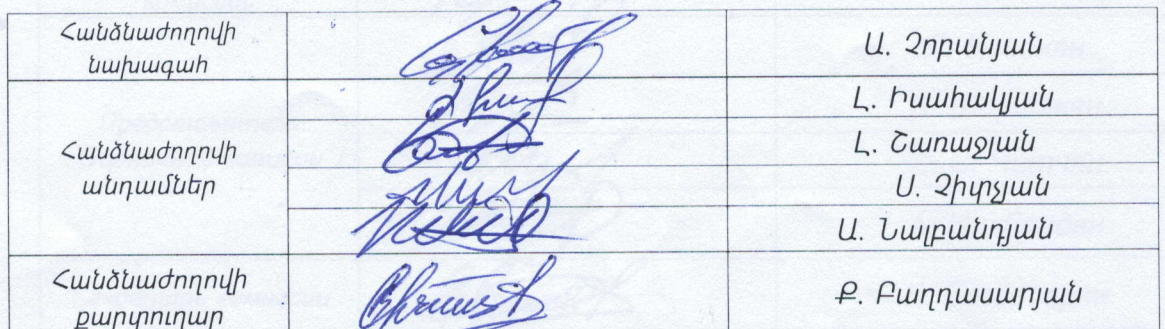 Հանձնաժողովի
նախագահ
Ա. Չոբանյան
Հանձնաժողովի
անդամներ
Լ. Իսահակյան
Լ. Շառաջյան
Ս. Չիլոյան
Ա. Նալբանդյան
Հանձնաժողովի
քարտուղար
Ք. Բաղդասարյան